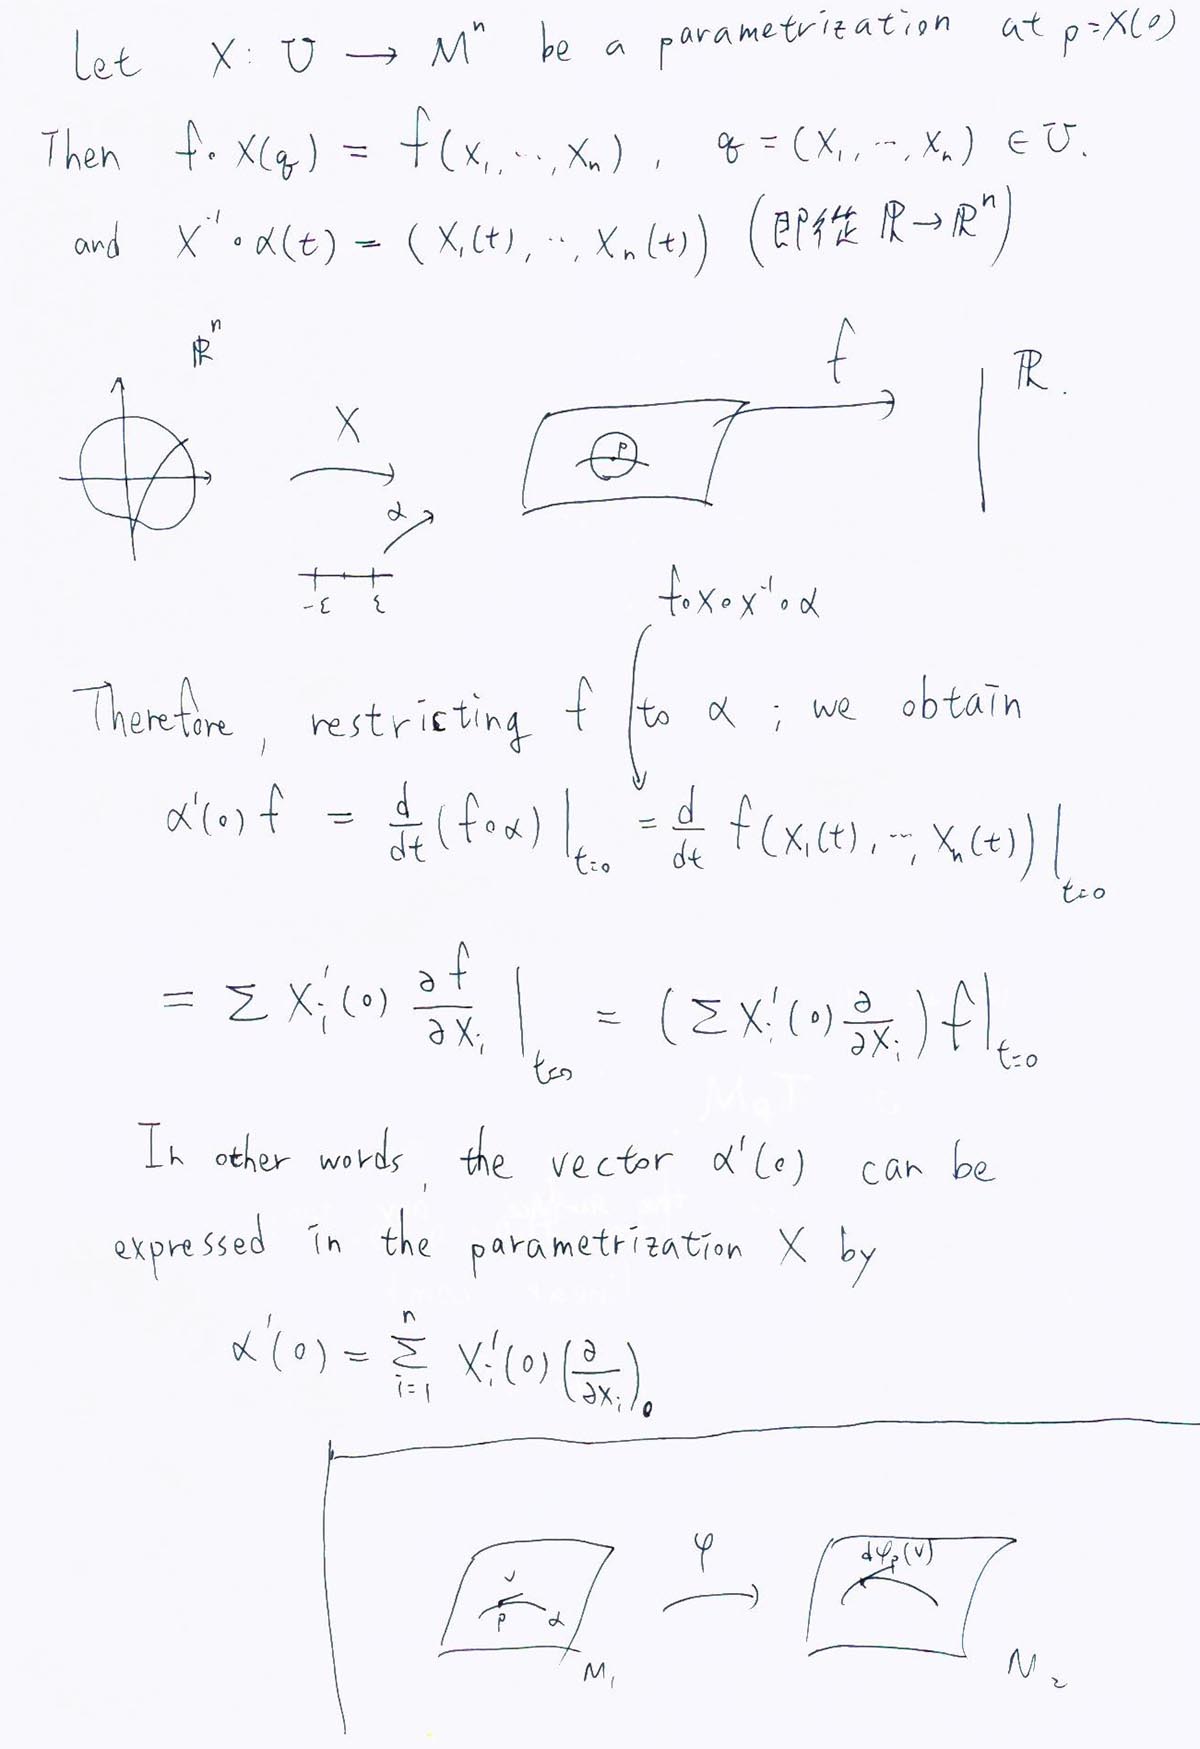 Let X: U → Mⁿ be a parametrization at p=X(0)
Then f∘X(q) = f(x₁,…,xₙ), q = (x₁,…,xₙ) ∈ U.
and X⁻¹∘α(t) = (x₁(t),…,xₙ(t)) (即從 ℝ→ℝⁿ)
ℝⁿ
X
α
-ε ε
p
f
ℝ.
f∘X∘X⁻¹∘α
Therefore, restricting f to α ; we obtain
α'(0) f = d/dt (f∘α)|t=0 = d/dt f(x₁(t),…,xₙ(t))|t=0
= Σ xᵢ'(0) ∂f/∂xᵢ |t=0 = (Σ xᵢ'(0) ∂/∂xᵢ) f|t=0
In other words, the vector α'(0) can be
expressed in the parametrization X by
α'(0) = Σⁿᵢ₌₁ xᵢ'(0) (∂/∂xᵢ)₀
v
p α
M₁
φ
dφₚ(v)
M₂